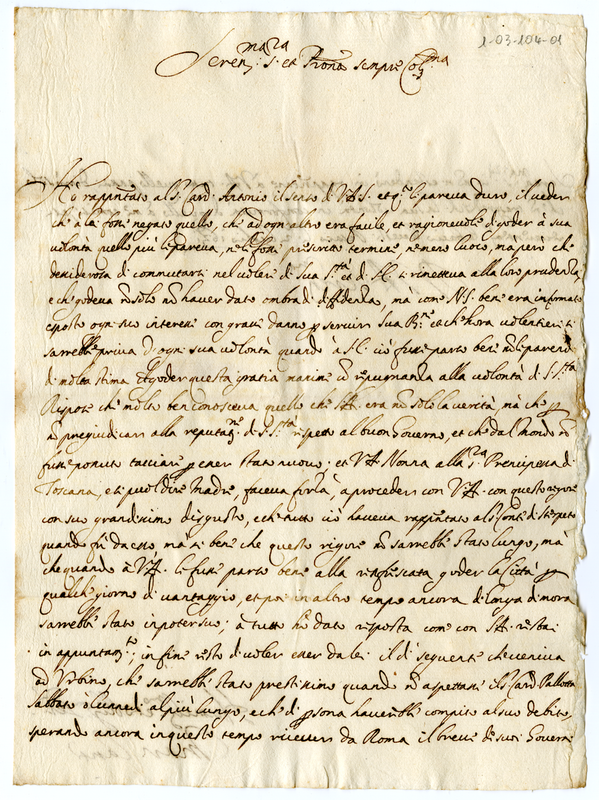 1-03-104-01
Seren.ma S.ra et Prona sempre Col.ma
Hò rappñtato al S. Card. Antonio il senso di V.A.S. et q. le pareva duro, il veder
ch'à lei fosse negato quello, che ad ogn'altro era facile, et ragionevole di goder à sua
volontà quello più le pareva, nè le fosse prescritto termine, nè meno luoco, mà però che
desiderosa di commutarsi nel voler di sua S.tà et di si rimetteva alla loro prudenza,
e che godeva nõ solo nõ haver dato ombra di diffidenza, mà come N.S. bene era informato
esposto ogni suo interesse con grave danno p servir sua B.ne et ch'hora volentieri si
sarrebbe priva d'ogni sua volontà quando à ciò fusse parso bene
di molta stima goder questa gratia massime repugnanza alla volontà di S. S.tà
Rispose che molto ben conosceva quello che era nõ solo la verità, mà che p
nõ pregiudicar alla reputat.ne di S. S.tà rispetto al buon Governo, et che dal Mondo nõ
fusse possuto tacciare p esser stato nuovo; et V.A. Nonna alla S.ra Prencipessa di
Toscana, et si può dire Madre, faceva forza, a proceder con V.A. con questo rigore
con suo grandissimo disgusto, e ch'tutto ciò haveva rappñtato al S. Conte di
quando fù da esso, mà si bene che questo rigore nõ sarrebbe stato lungo, mà
che quando à V.A. le fusse parso bene alla rinfrescata goder la Città p
qualche giorno di vantaggio, et poi in altro tempo ancora di longa dimora
sarrebbe stato in poter suo; à tutto hò dato risposta come con restai
in appuntam.to; in fine restò di voler esser da lei il dì seguente che veniva
ad Urbino, che sarrebbe stato prestissimo quando nõ aspettasse il S. Card. Pallotta
Sabbato ò Lunedì al più lungo, e ch'di psona haverebbe compito al suo debito,
sperando ancora in questo tempo ricever da Roma il breve de suoi Governi